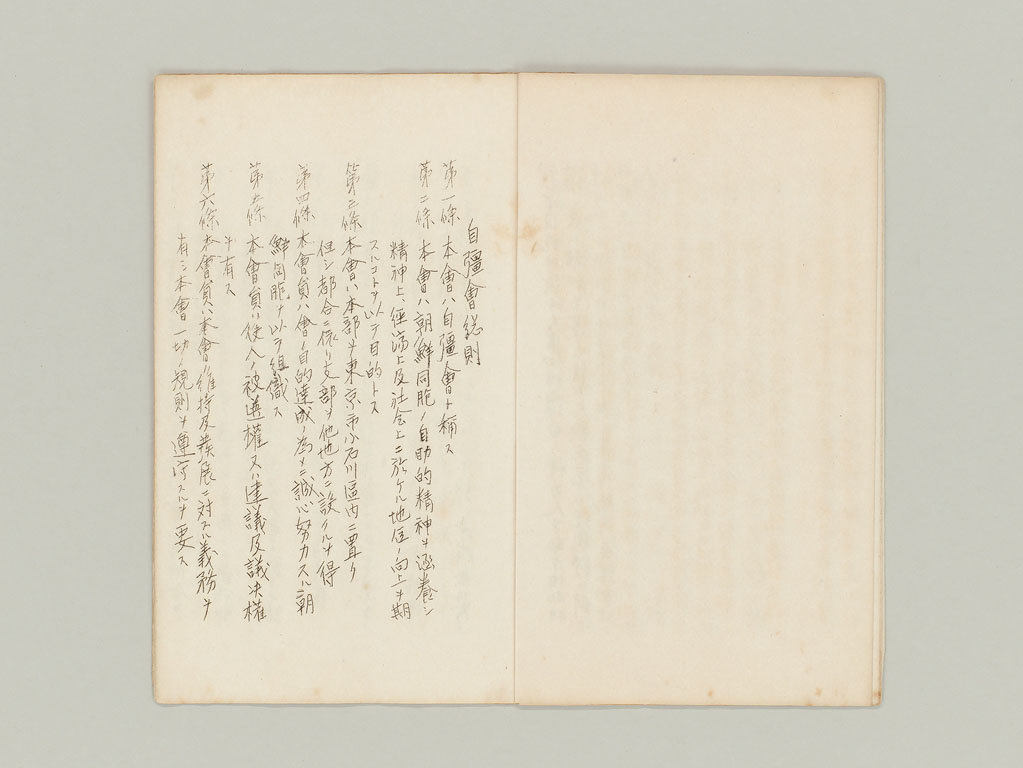 自彊會総則
第一條 本會ハ自彊會ト稱ス
第二條 本會ハ朝鮮同胞ノ自助的精神ヲ涵養シ
精神上、經濟上及社会上ニ於ケル地位ノ向上ヲ期
スルコトヲ以テ目的トス
第三條 本會ハ本部ヲ東京市小石川區内ニ置ク
但シ都合ニ依リ支部ヲ他地方ニ設クルヲ得
第四條 本會員ハ會ノ目的達成ノ為メニ誠心努力スル朝
鮮同胞ヲ以テ組織ス
第五條 本會員ハ役人ノ被選權又ハ建議及議決權
ヲ有ス
第六條 本會員ハ本會ノ維持及発展ニ対スル義務ヲ
有シ本會一切ノ規則ヲ遵守スルヲ要ス